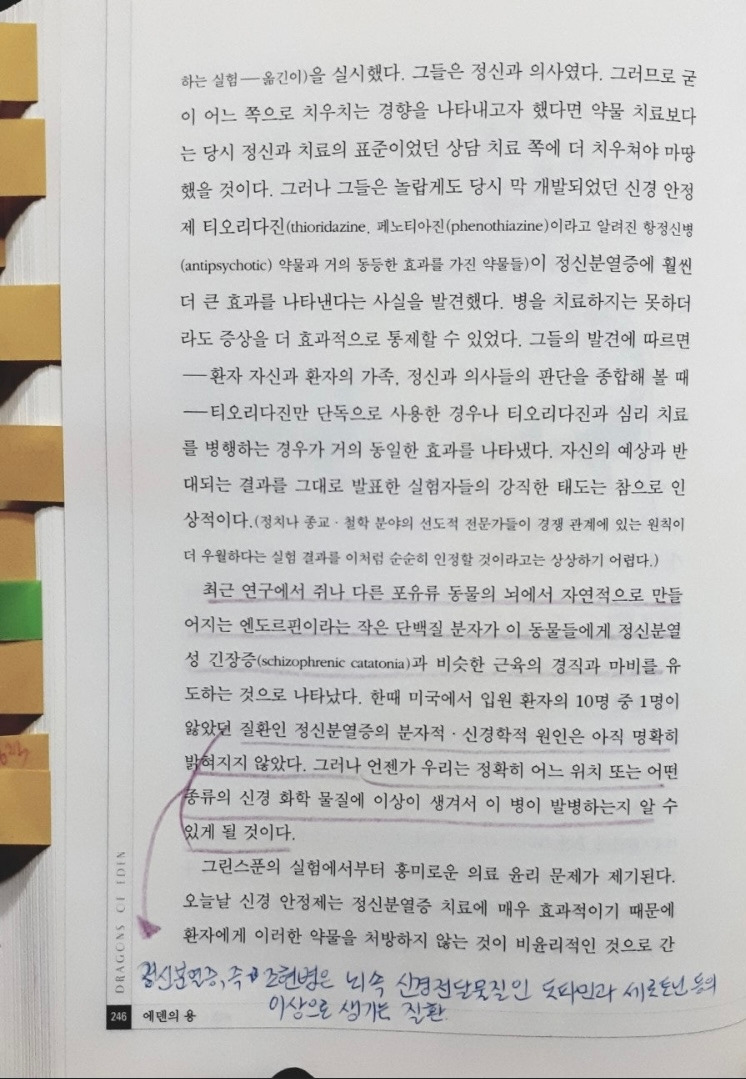 하는 실험―옮긴이)을 실시했다. 그들은 정신과 의사였다. 그러므로 굳
이 어느 쪽으로 치우치는 경향을 나타내고자 했다면 약물 치료보다
는 당시 정신과 치료의 표준이었던 상담 치료 쪽에 더 치우쳐야 마땅
했을 것이다. 그러나 그들은 놀랍게도 당시 막 개발되었던 신경 안정
제 티오리다진(thioridazine, 페노티아진(phenothiazine)이라고 알려진 항정신병
(antipsychotic) 약물과 거의 동등한 효과를 가진 약물들)이 정신분열증에 훨씬
더 큰 효과를 나타낸다는 사실을 발견했다. 병을 치료하지는 못하더
라도 증상을 더 효과적으로 통제할 수 있었다. 그들의 발견에 따르면
―환자 자신과 환자의 가족, 정신과 의사들의 판단을 종합해 볼 때
―티오리다진만 단독으로 사용한 경우나 티오리다진과 심리 치료
를 병행하는 경우가 거의 동일한 효과를 나타냈다. 자신의 예상과 반
대되는 결과를 그대로 발표한 실험자들의 강직한 태도는 참으로 인
상적이다.(정치나 종교·철학 분야의 선도적 전문가들이 경쟁 관계에 있는 원칙이
더 우월하다는 실험 결과를 이처럼 순순히 인정할 것이라고는 상상하기 어렵다.)
최근 연구에서 쥐나 다른 포유류 동물의 뇌에서 자연적으로 만들
어지는 엔도르핀이라는 작은 단백질 분자가 이 동물들에게 정신분열
성 긴장증(schizophrenic catatonia)과 비슷한 근육의 경직과 마비를 유
도하는 것으로 나타났다. 한때 미국에서 입원 환자의 10명 중 1명이
앓았던 질환인 정신분열증의 분자적·신경학적 원인은 아직 명확히
밝혀지지 않았다. 그러나 언젠가 우리는 정확히 어느 위치 또는 어떤
종류의 신경 화학 물질에 이상이 생겨서 이 병이 발병하는지 알 수
있게 될 것이다.
그린스푼의 실험에서부터 흥미로운 의료 윤리 문제가 제기된다.
오늘날 신경 안정제는 정신분열증 치료에 매우 효과적이기 때문에
환자에게 이러한 약물을 처방하지 않는 것이 비윤리적인 것으로 간
정신분열증, 즉 조현병은 뇌 속 신경전달물질인 도파민과 세로토닌 등의
이상으로 생기는 질환
DRAGONS OF EDEN
246 에덴의 용